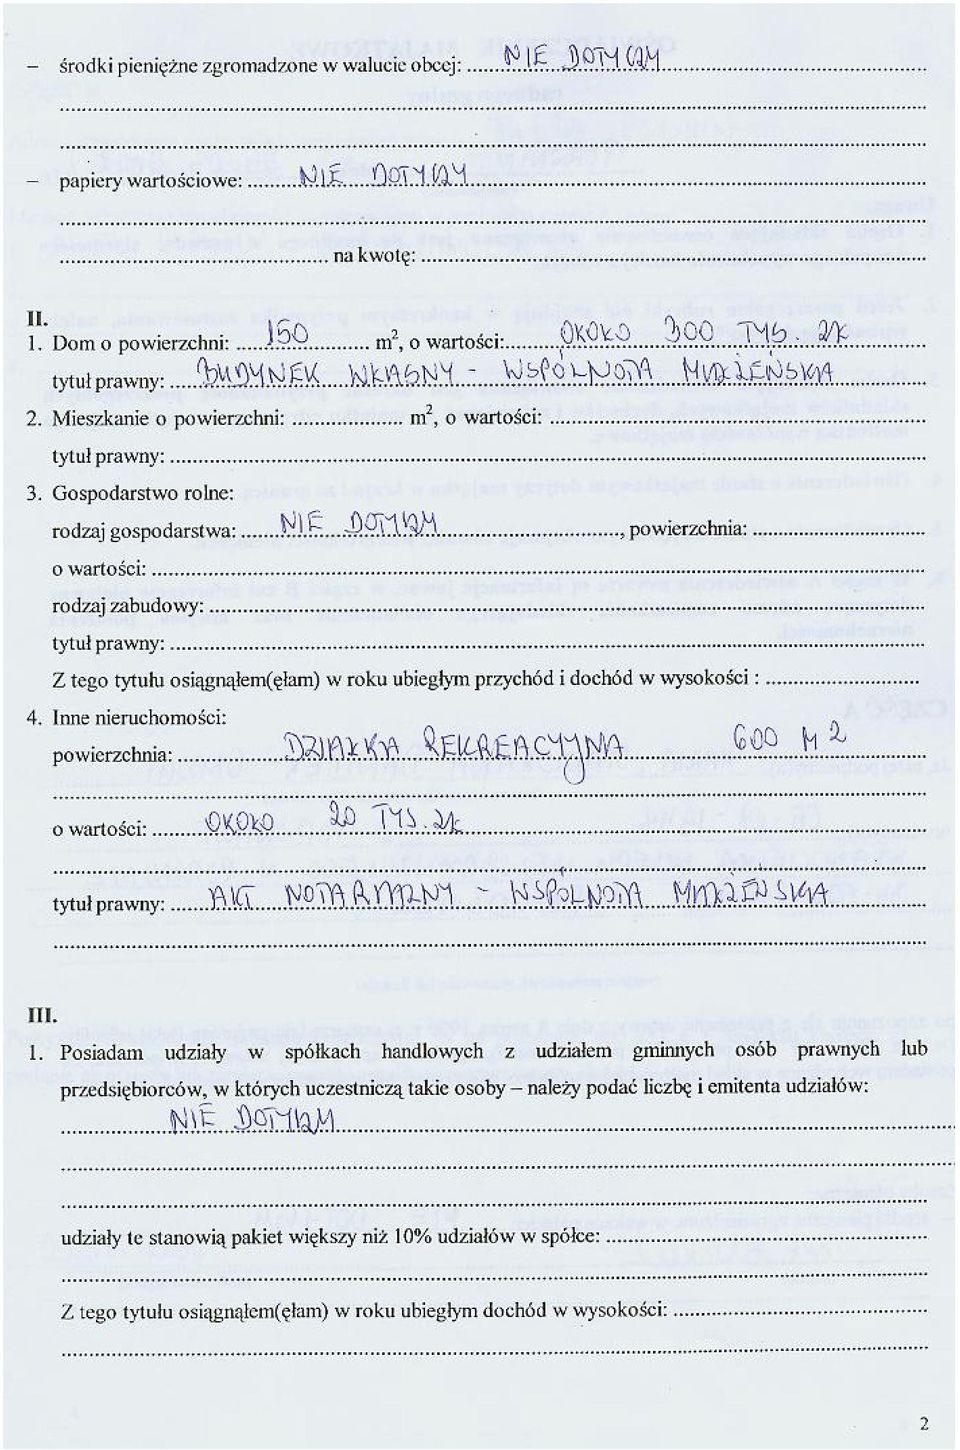 – środki pieniężne zgromadzone w walucie obcej: NIE DOTYCZY
– papiery wartościowe: NIE DOTYCZY
na kwotę:
II.
1. Dom o powierzchni: 150 m², o wartości: OKOŁO 300 TYS. ZŁ
tytuł prawny: BUDYNEK WŁASNY - WSPÓLNOTA MAŁŻEŃSKA
2. Mieszkanie o powierzchni: m², o wartości:
tytuł prawny:
3. Gospodarstwo rolne:
rodzaj gospodarstwa: NIE DOTYCZY, powierzchnia:
o wartości:
rodzaj zabudowy:
tytuł prawny:
Z tego tytułu osiągnąłem(ęłam) w roku ubiegłym przychód i dochód w wysokości :
4. Inne nieruchomości:
powierzchnia: DZIAŁKA REKREACYJNA 600 M2
o wartości: OKOŁO 20 TYS. ZŁ
tytuł prawny: AKT NOTARIALNY - WSPÓLNOTA MAŁŻEŃSKA
III.
1. Posiadam udziały w spółkach handlowych z udziałem gminnych osób prawnych lub
przedsiębiorców, w których uczestniczą takie osoby – należy podać liczbę i emitenta udziałów:
NIE DOTYCZY
udziały te stanowią pakiet większy niż 10% udziałów w spółce:
Z tego tytułu osiągnąłem(ęłam) w roku ubiegłym dochód w wysokości:
2